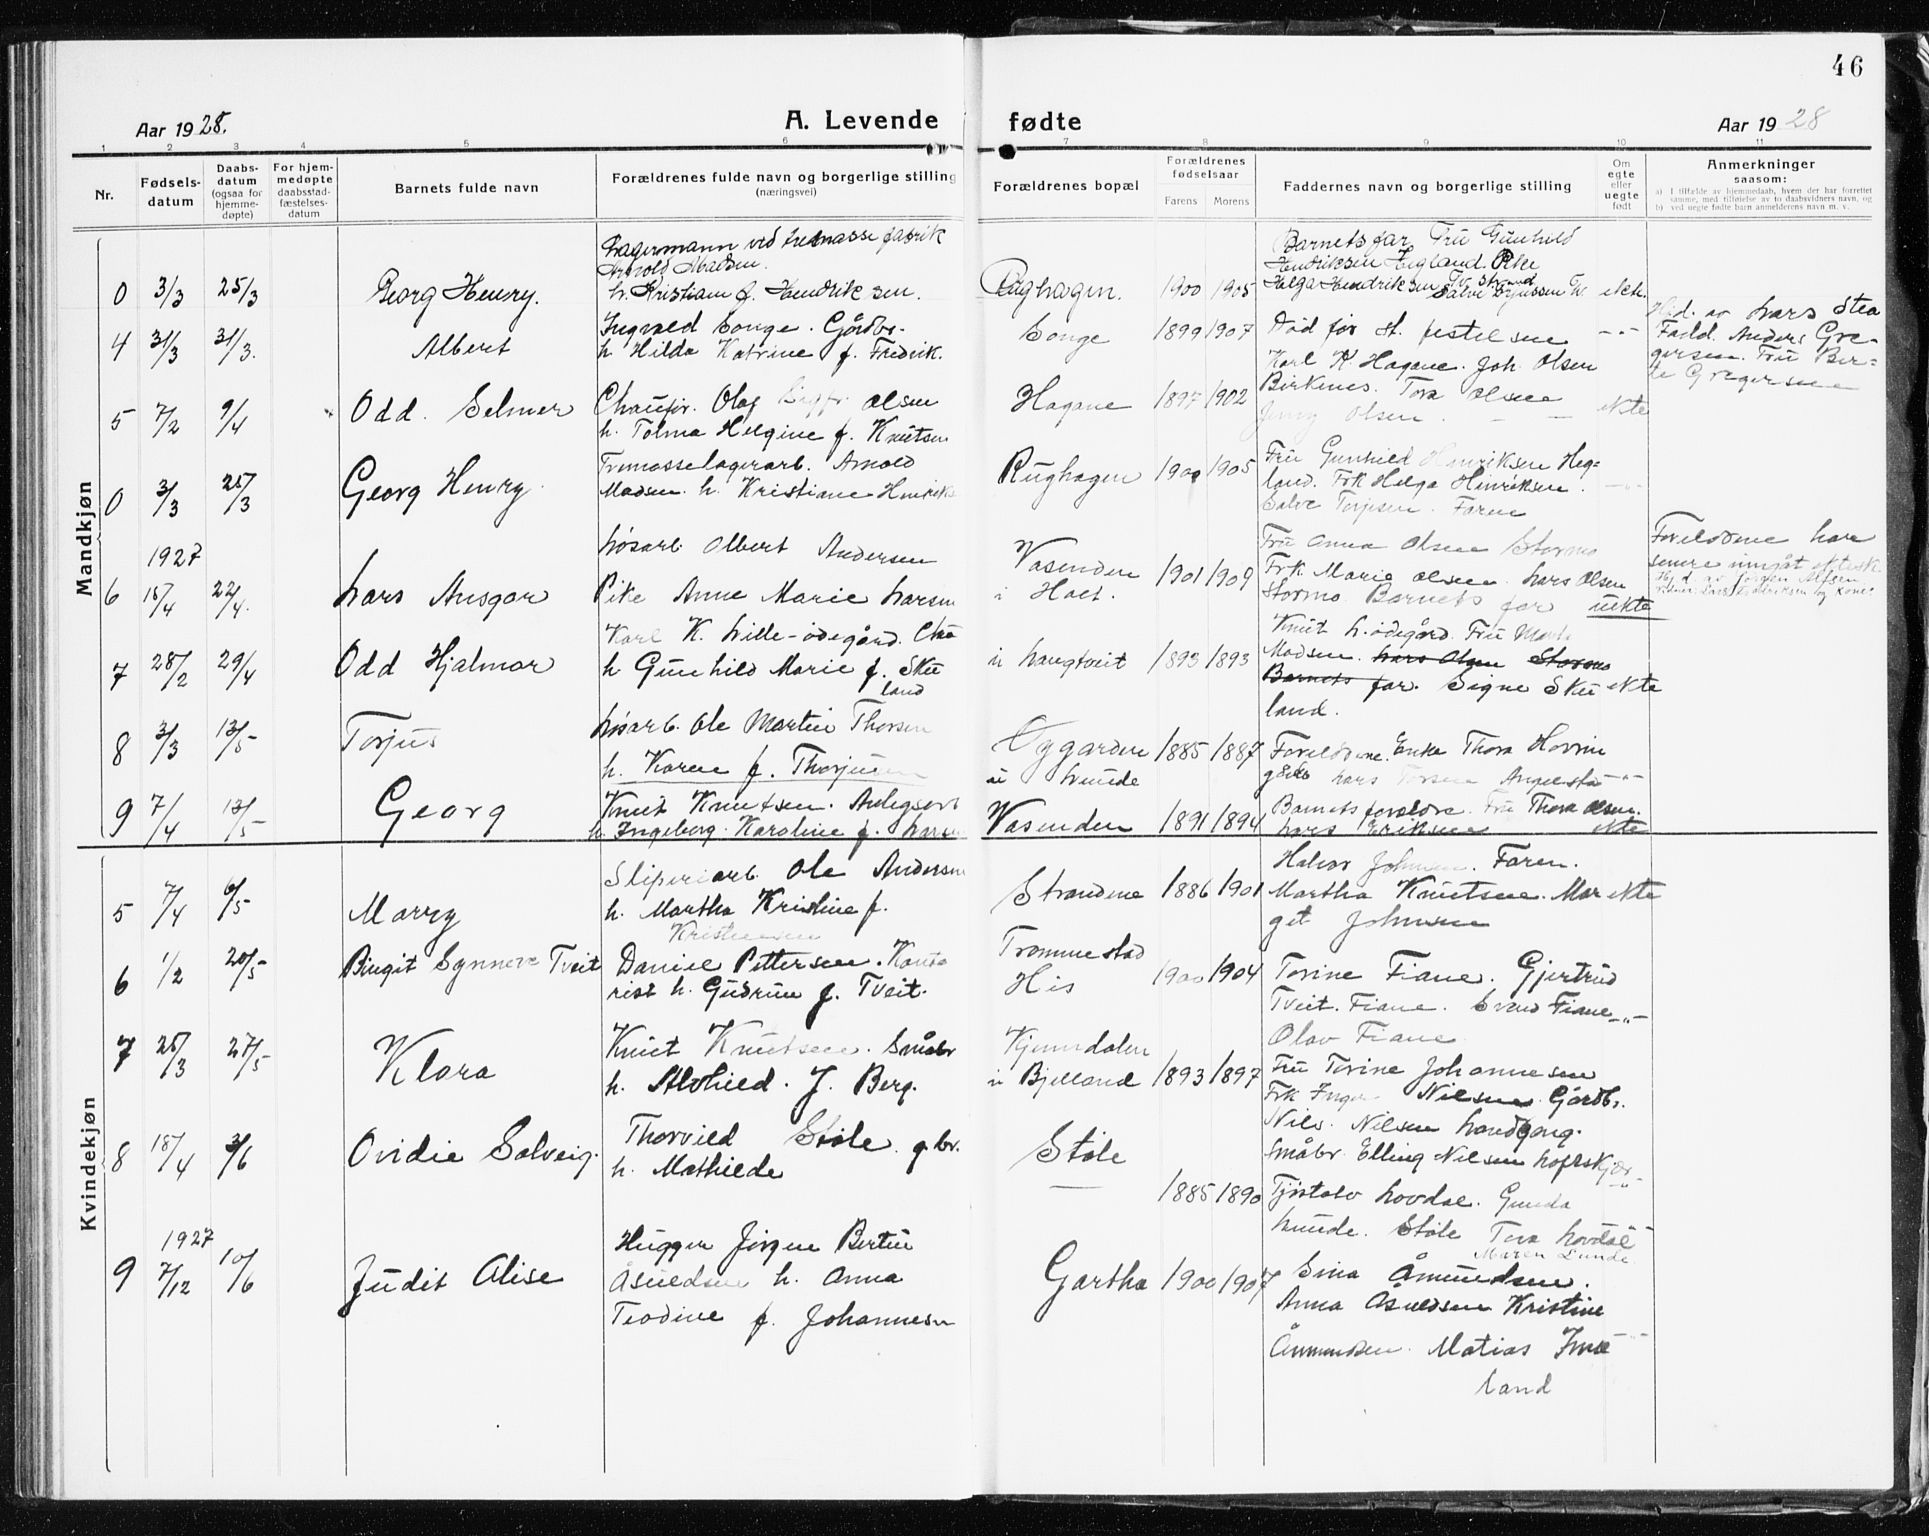 46
Aar 1928.
A. Levende
fødte
Aar 1928
1 2 3 4 5 6 7 8 9 10 11
Nr.
Fødsels-
datum
Daabs-
datum
(ogsaa for
hjemme-
døpte)
For hjem-
medøpte
daabsstad-
fæstelses-
datum
Barnets fulde navn
Forældrenes fulde navn og borgerlige stilling
(næringsvei)
Forældrenes bopæl
Forældrenes
fødselsaar
Farens Morens
Faddernes navn og borgerlige stilling
Om
egte
eller
uegte
født
Anmerkninger
saasom:
a) I tilfælde av hjemmedaab, hvem der har forrettet
samme, med tilføielse av to daabsvidners navn, og
b) ved uegte fødte barn anmelderens navn m. v.
Mandkjøn
0 3/3 25/3 Georg Henry.
Lagermann ved tremasse fabrik
Arnold Madsen.
h. Kristiane f. Hendriksen.
Rughagen. 1900 1905
Barnets far Fru Gunhild
Hendriksen Hegland. Pike
Helga Hendriksen
ekte.
4 31/3 31/3. Albert
Ingvald Songe. Gårdbr.
h. Hilda Katrine f. Fredrik.
Songe 1899 1907
Død før st. festelsen -"-
Hjd. av Lars Stea
Fadd. Anders Gre-
gersen. Fru Ber-
te Gregersen
5 7/2 9/4 Odd. Selmer
Chaufør. Olaf Sigfr. Olsen
h. Tolma Helgine f. Knutsen
Hagane 1897 1902
Karl K. Hagane. Joh. Olsen
Birkenes. Tora Olsen
Jenny Olsen. ekte
0 3/3 25/3 Georg Henry.
Tremasselagerarb. Arnold
Madsen. h. Kristiane Henriks
Rughagen 1900 1905
Fru Gunhild Henriksen Heg-
land. Frk Helga Henriksen. -"-
Salve Torjusen. Faren
1927
6 18/4 22/4. Lars Ansgar
Løsarb. Olbert Andersen
Pike Anne Marie Larsen
Vasenden
i Holt. 1901 1909
Fru Anna Olsen Stormo
Frk. Marie Olsen. Lars Olsen
Stormo. Barnets far uekte
Foreldrene har
senere inngåt ektesk.
Hjd. av Jørgen
7 28/2 29/4 Odd Hjalmar
Karl K. Lille-ødegård.
h Gunhild Marie f. Ske
land
u Langtveit 1893 1893
Knut L. ødegård. Fru
Madsen. Lars Olsen Stormo
Barnets far. Signe Ske ekte
land.
8 3/3 13/5 Torjus
Løsarb. Ole Martin Thorsen
h. Karen f. Thorjusen
Øygarden
u Lunde 1885 1887
Foreldrene. Enke Thora Hovin
Lars Torsen -"-
9 7/4 13/5 Georg
Knut Knutsen. Anlegsarb
h. Ingeborg Karoline f. Larsen
Vasenden 1891 1894
Barnets foreldre. Fru Thora Olsen.
Lars Eriksen ekte
Kvindekjøn
5 7/4 6/5 Marry
Sliperiarb. Ole Andersen
h. Martha Kristine f.
Kristensen
Strandene 1886 1901
Halvor Johnsen. Faren.
Martha Knutsen. Mar ekte
get Johnsen
6 1/2 20/5 Birgit Synnøve Tveit
Daniel Pettersen. Kontо
rist h. Gudrun f. Tveit.
Trommestad
His 1900 1904
Torine Fiane. Gjertrud
Tveit. Fiane. Svend Fiane -"-
Olav Fiane
7 25/3 27/5 Klara
Knut Knutsen. Småbr
h. Alvhild. f. Berg.
Kjenndalen
u Bjelland 1893 1897
Fru Torine Johannesen
Frk Inger Nilsen. Gårdbr.
Nils. Nilsen
Småbr. Elling Nilsen -"-
8 18/4 3/6 Ovidie Solveig.
Thorvild Støle g.br.
h. Mathilde
Støle
1885 1890
Tjøstolv Hovdal. Gunda
Lunde. Støle Tora Hovdal -"-
Maren Lunde
1927
9 7/12 10/6 Judit Alise
Hugger Jørgen Bertin
Åsuldsen h. Anna
Teodine f. Johannesen
Gartha 1900 1907
Sina Åmundsen.
Anna Åsuldsen Kristine
Åmundsen. Matias -"-
land